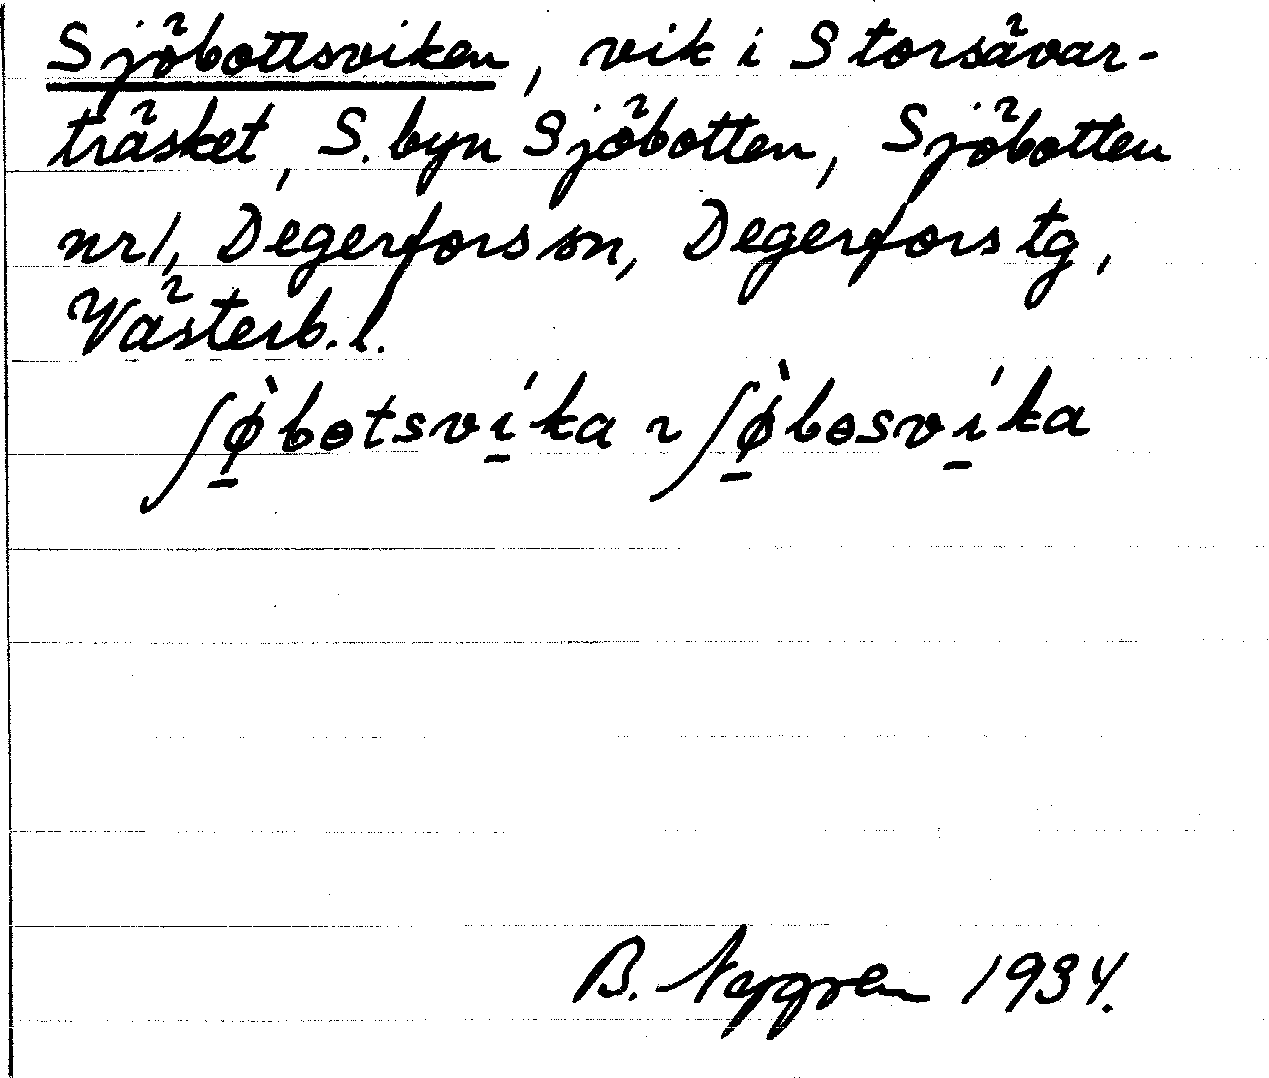 Sjöbottsviken, vik i Storsävar-
träsket, S. byn Sjöbotten, Sjöbotten
nr 1, Degerfors sn, Degerfors tg,
Västerb. l.
ʃø̱̀bɵtsví̱ka ~ ʃø̱̀bɵsví̱ka
B. Nygren 1934.